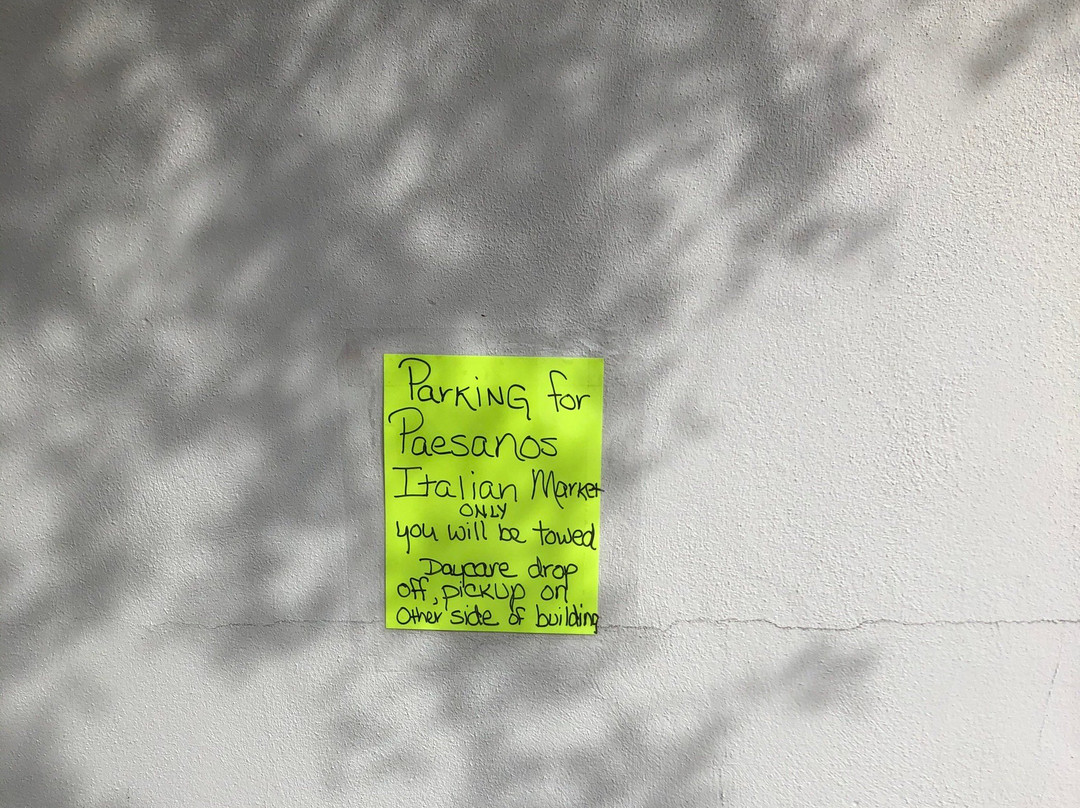 ParkiNG for
Paesanos
Italian Market
ONLY
you will be towed
Daycare drop
off, pickup on
Other side of building